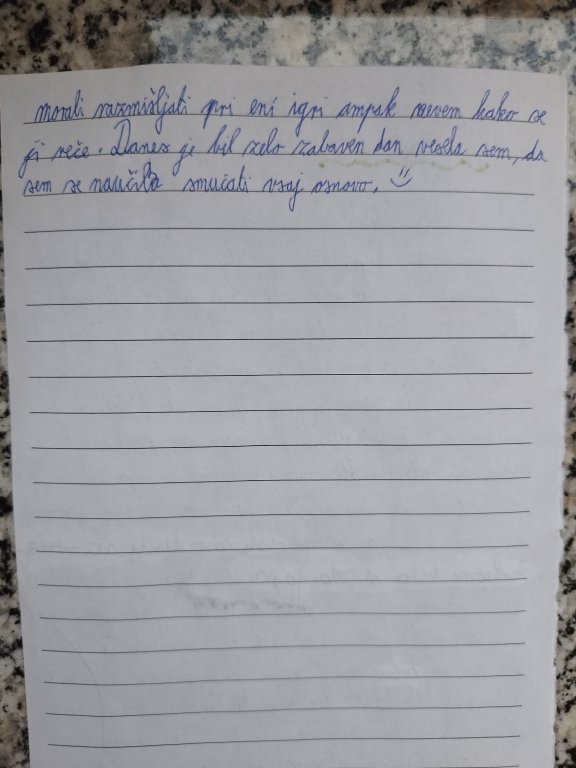 morali razmišljati pri eni igri ampak nevem kako se
ji reče. Danes je bil zelo zabaven dan vesela sem, da
sem se naučila smučati vsaj osnovo. :)